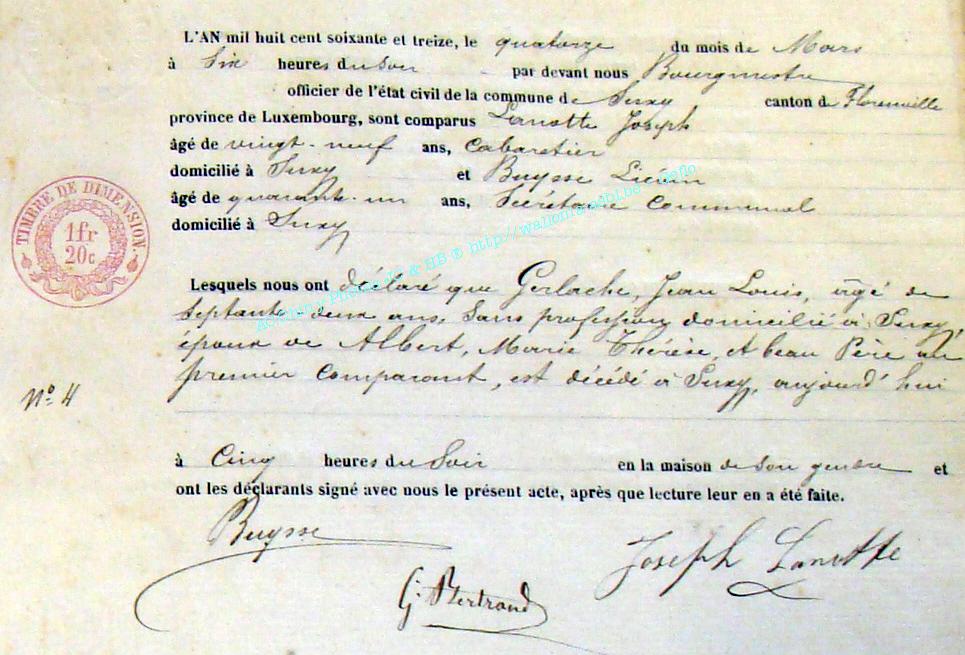 L'AN mil huit cent soixante et treize, le quatorze du mois de Mars
à Six heures du Soir par devant nous Bourgmestre
officier de l'état civil de la commune de Suxy canton de Florenville
province de Luxembourg, sont comparus Lanotte Joseph
âgé de vingt-neuf ans, Cabaretier
domicilié à Suxy et Buysse Liévin
âgé de quarante-un ans, Sécrétaire Communal
domicilié à Suxy
TIMBRE DE DIMENSION.
1fr
20c
Lesquels nous ont déclaré que Gerlache, Jean Louis, âgé de
Septante deux ans, Sans profession domicilié à Suxy,
époux de Albert, Marie Thérèse, et beau Père au
premier Comparant, est décédé à Suxy, aujourd'hui
No. 4
à Cinq heures du Soir en la maison de son gendre et
ont les déclarants signé avec nous le présent acte, après que lecture leur en a été faite.
Buysse
Joseph Lanotte
G. Bertrand
& HB © http://wallonica